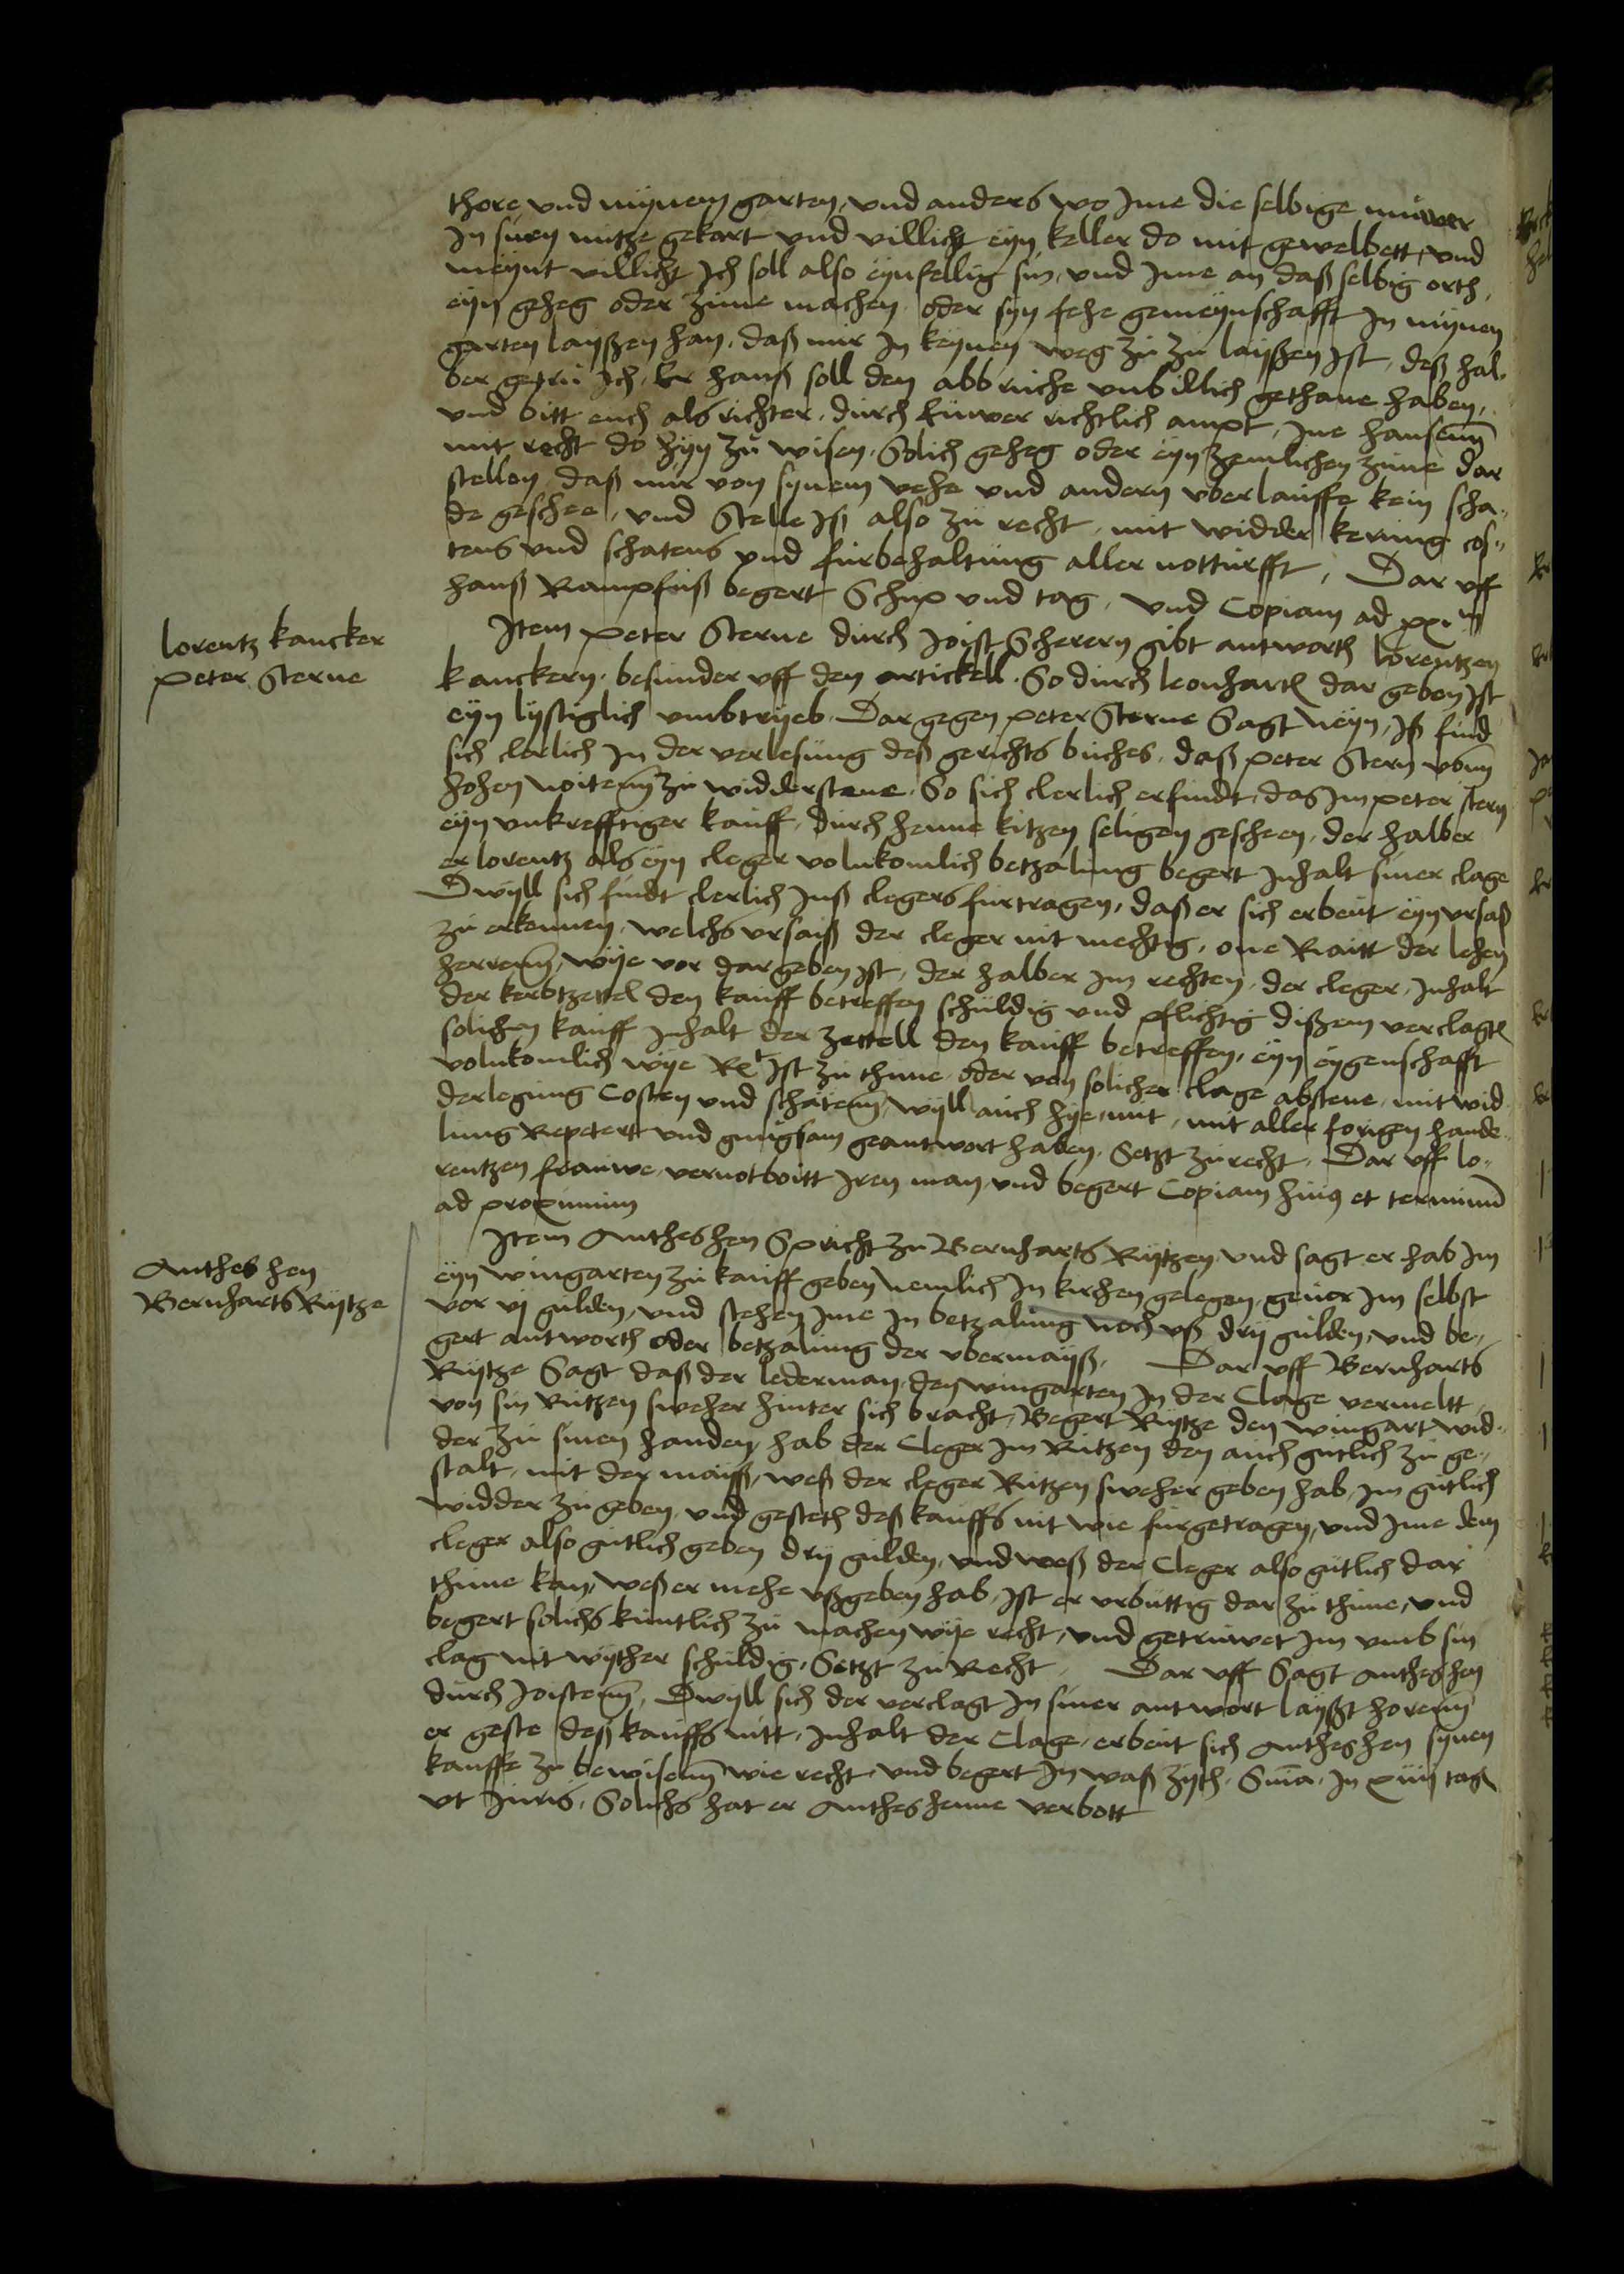 thore und mynem garten, und anders wo Ime die selbige muwer
In siney nutze gekart und villicht eyn keller do mit gewelbett, und
meynt villicht Ich soll also eynfellig sin, und Ime an daß selbig orth,
eyn geheg oder zune machen oder syn fehe gemeynschafft In mynen
garten layßen han, daß mir In keynen weg zu zu layßen ist, deß hal-
ber getru Ich, Er hanß soll den abbruche unbillich gethane haben,
und bitt euch als richter, durch Euwer richtlich ampt, Ine hansenn
mit recht do hyn zu wisen, Solich geheg oder eyn zemlichen zune dar
stellen, daß mir von synem vehe und andern uberlauffe kein scha-
de geschee, und Stelle Iß also zu recht, mit widder kerung cos-
tens und schatens und furbehaltung aller notturfft, Dar uff
hanß Rampfuß begert Schup und tag, und Copiam ad xxi
Item peter Sterne durch Joist Scherern gibt antworth lorentzen
kanckern, besunder uff den artickell, So durch leonhart dar geben ist
eyn lystiglich umbtryeb, Dargegen peter Sterne Sagt neyn, Iß find
sich clerlich In der verlesung deß gerichts buches, daß peter Stern von
hohen noitenn zu widderstene, So sich clerlich erfindt, das Im peter stern
eyn unkrefftiger kauff, durch henne kitzen seligen gescheen, der halber
er lorentz als eyn cleger volnkomlich betzalung begert Inhalt siner clage
Dwyll sich findt clerlich Inß clegers furtragen, daß er sich erbeut eyn ursaß
zu erkennen, welchs ursaiß der cleger nit mechtig, one Raitt der lehen
herrenn, wye vor dargeben ist, der halber im rechten, der cleger, Inhalt
der kerbtzettel den kauff betreffen schuldig und pflichtig dißem verclagten
solichen kauff Inhalt der zettell den kauff betreffen, eyn eygenschafft
volnkomlich wye Recht ist zu thune, oder von solicher clage abstene, mit wid
derlegung Costen und schatenn, wyll auch hye mit, mit aller forigen hande-
lung Repetert und gnugsam geantwort haben, Setzt zu recht, Dar uff lo-
rentzen frauwe, vernotboitt Iren man, und begert Copiam huius et terminum
ad proximum
Item Anthes hen Spricht zu Bernharts Rytzen, und sagt er hab Im
eyn wingarten zu kauff geben nemlich In kirchen gelegen, geuor Im selbst
vor vj gulden, und stehen Ime In betzalung noch uß dry gulden, und be-
gert antworth oder betzalung der ubermayß, Dar uff Bernharts
Rytze Sagt daß der lederman, den wingarten In der Clage vermeltt,
von sin Ritzen sweher hinter sich bracht, Begert Rytze den wingart wid-
der zu sinen handen, hab der Cleger Im Ritzen den auch gutlich zu ge-
stalt, mit der maiß, weß der cleger Ritzen sweher geben hab, Im gutlich
widder zu geben, und gesteth deß kauffs nit wie furgetragen, und Ime dem
cleger also gutlich geben dry gulden, und weß der Cleger also gutlich dar
thune kan, weß er mehe ußgeben hab, Ist er urbuttig dar zu thune, und
begert solichs kuntlich zu machen wye recht, und getruwet Im umb sin
clag nit wyther schuldig, Setzt zu Recht, Dar uff Sagt Anthes hen
durch Joistenn, Dwyll sich der verclagt In siner antwort layßt horenn
er geste deß kauffs nitt, Inhalt der Clage, erbeut sich Anthes hen synen
kauffe zu bewisenn wie recht, und begert In waß zyth, Sma, In xiiij tagen
ut Juris, Solichs hat er Anthes henne verbott
lorentz kancker
peter Sterne
Anthes hen
Bernharts Rytze